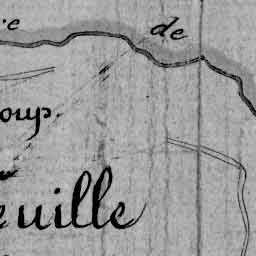 e
de
oup.
euille